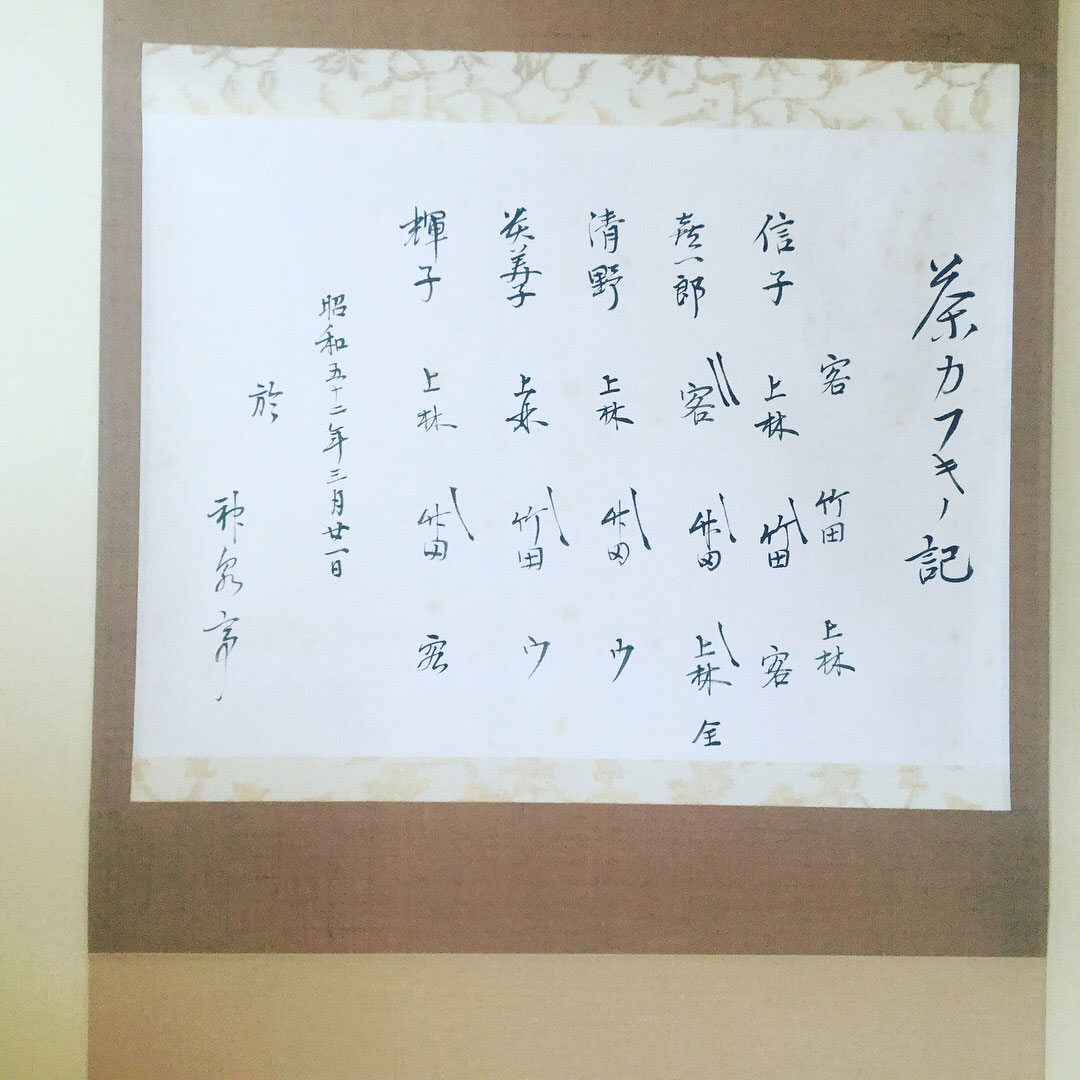 茶カフキノ記
客 竹田 上林
信子 上林 竹田 客
喜一郎 客 竹田 上林 全
清野 上林 竹田 ウ
英美子 上林 竹田 ウ
輝子 上林 竹田 客
昭和五十二年三月廿一日
於
神泉亭